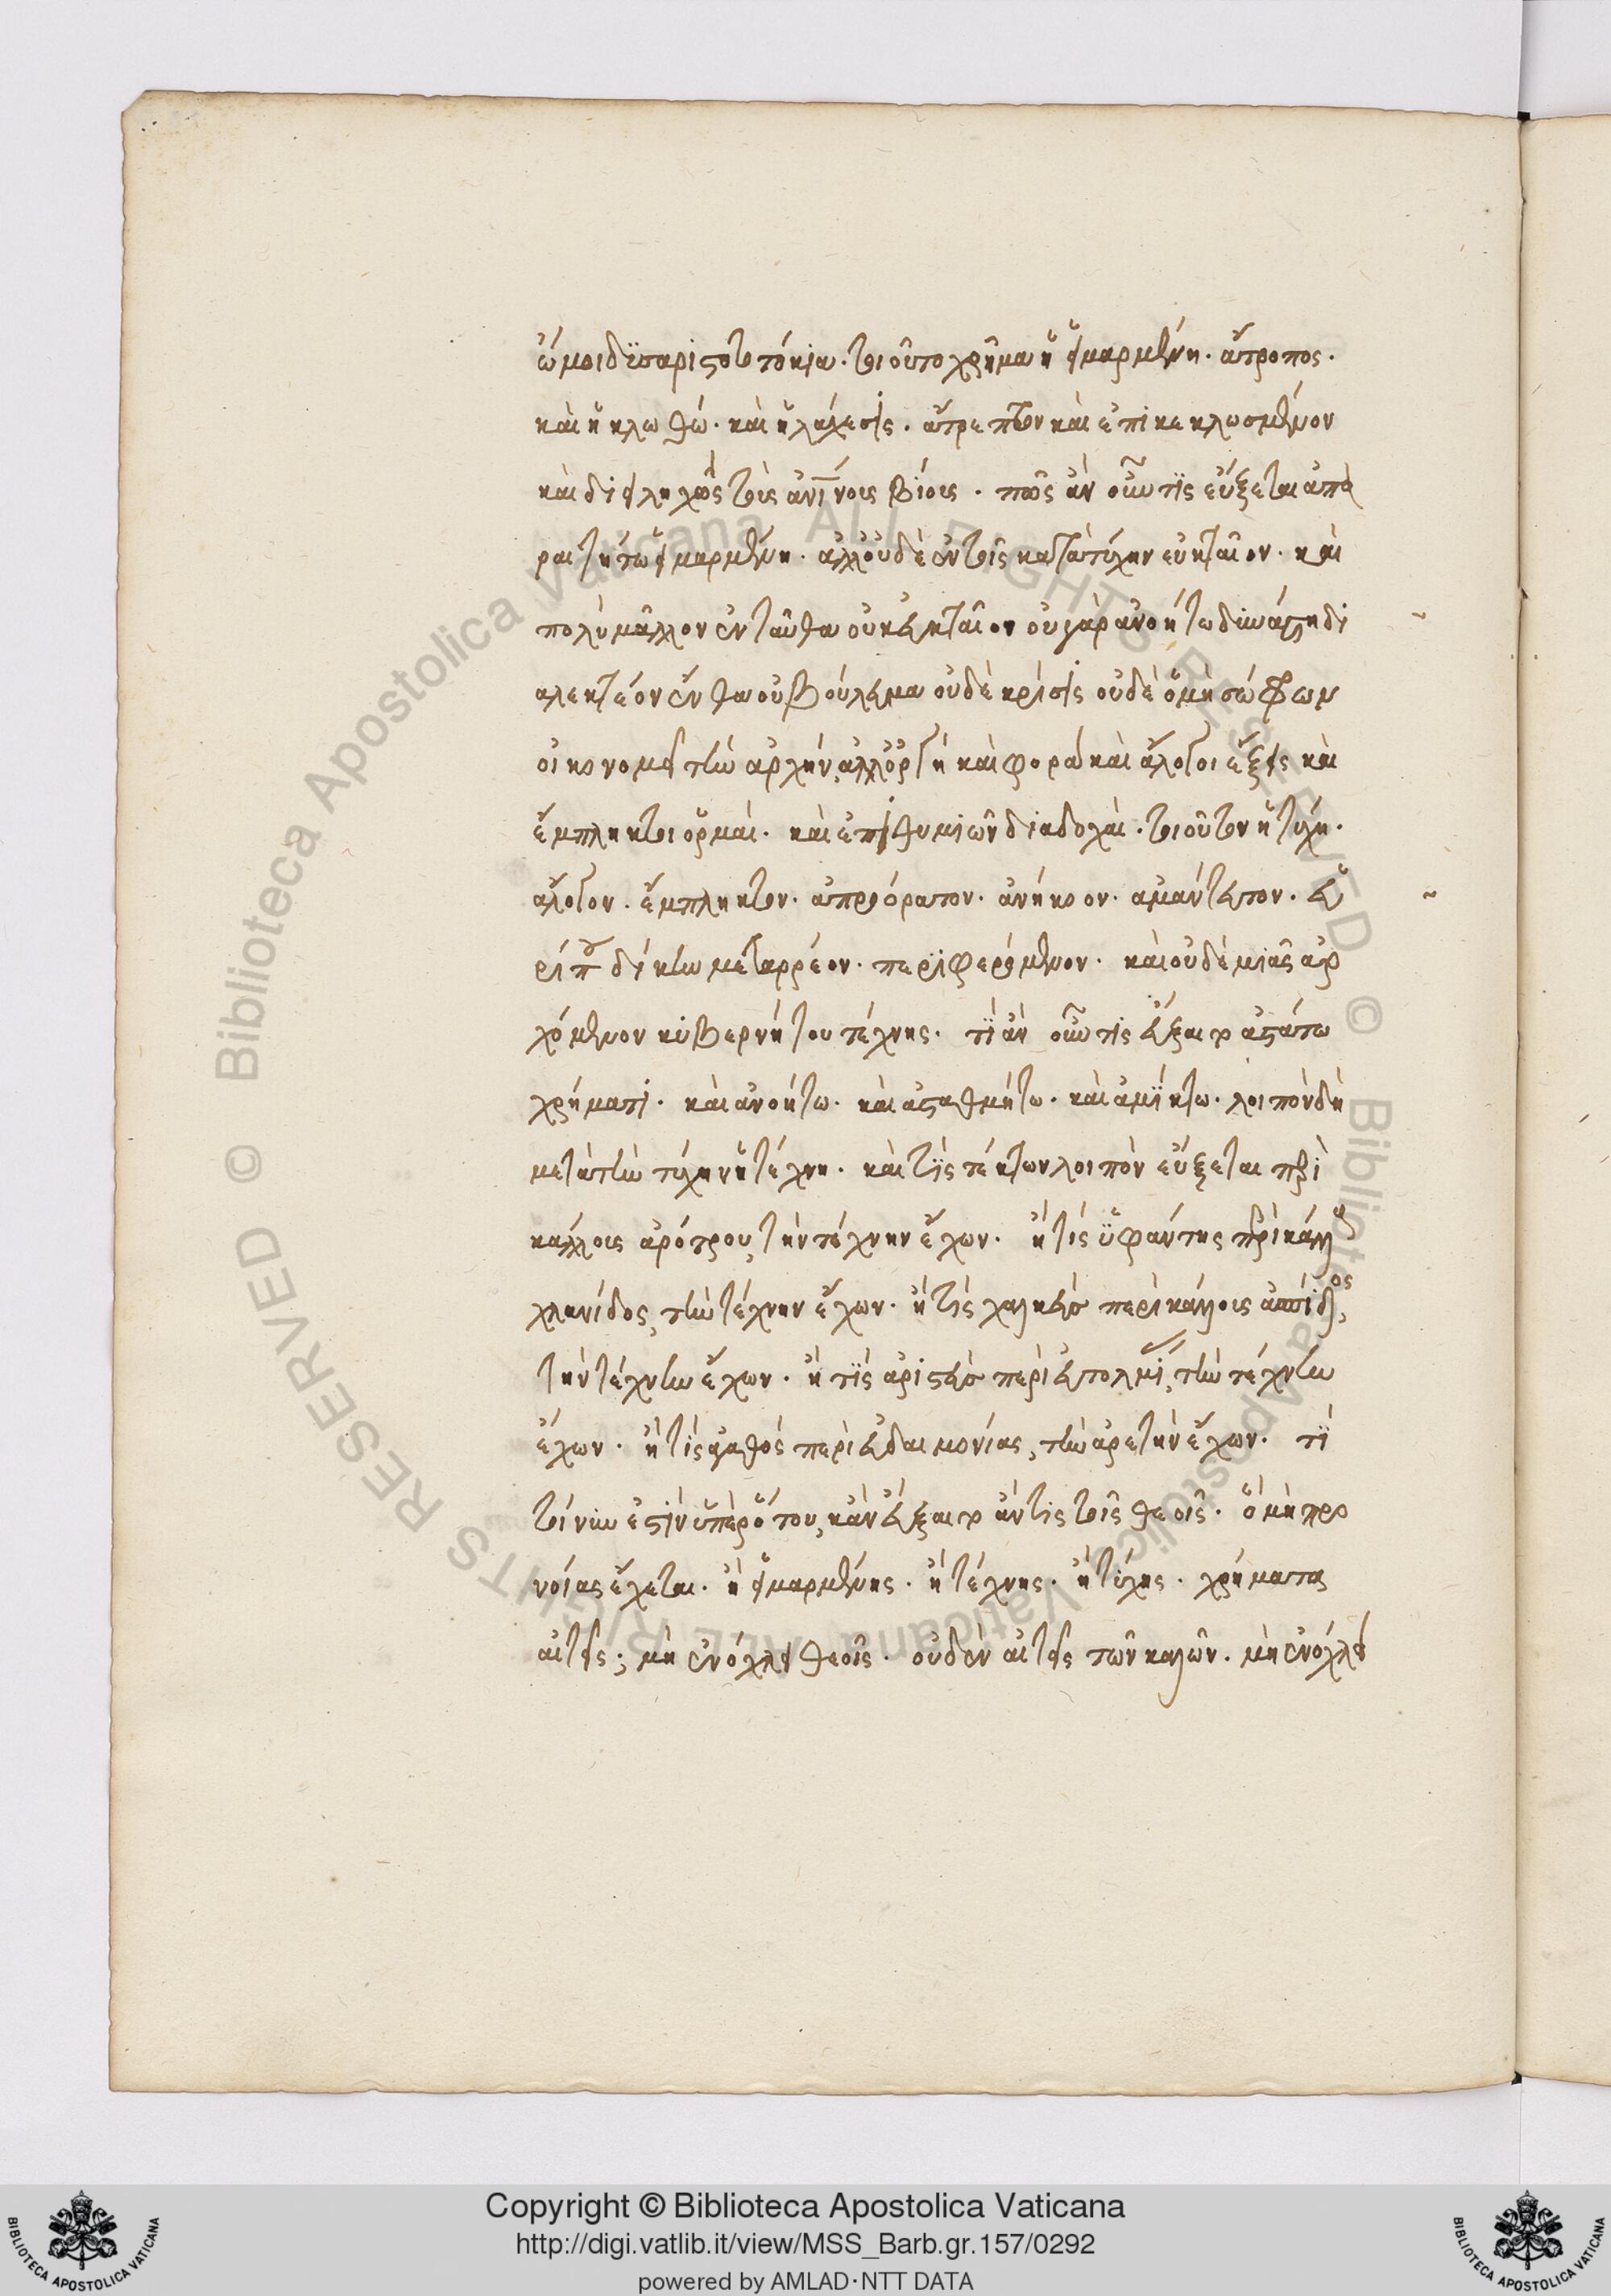 ὤμοι δυσαριστοτόκεια. τοιοῦτο χρῆμα ἡ εἱμαρμένη. ἄτροπος.
καὶ ἡ κλωθώ. καὶ ἡ λάχεσις. ἄτρεπτον καὶ ἐπικεκλωσμένον
καὶ διειληχὼς τοῖς ἀνίνοις βίοις. πῶς ἂν οὖν τὶς εὔξεται ἀπα
ραιτήτω εἱμαρμένη. ἀλλ' οὐδὲ ἐν τοῖς κατὰ τύχην εὐκταῖον. καὶ
πολὺ μᾶλλον ἐνταῦθα οὐκ εὐκταῖον οὐ γὰρ ἀνοήτω δυνάστη δι
αλεκτέον ἔνθα οὐ βούλευμα οὐδὲ κρίσις οὐδὲ ὁρμὴ σώφρων
οἰκονομεῖ τὴν ἀρχήν, ἀλλ' ὀργὴ καὶ φορὰ καὶ ἄλογοι ἕξεις καὶ
ἔμπληκτοι ὁρμαὶ. καὶ ἐπιθυμιῶν διαδοχαὶ. τοιοῦτον ἡ τύχη.
ἄλογον. ἔμπληκτον. ἀπροόρατον. ἀνήκοον. ἀμάντευτον. εὐ
ρίπου δίκην μεταρρέον. περιφερόμενον. καὶ οὐδὲ μιᾶς ἀρ
χόμενον κυβερνήτου τέχνης. τί ἂν οὖν τὶς εὔξαιτο ἀστάτω
χρήματι. καὶ ἀνοήτω. καὶ ἀσταθμήτω. καὶ ἀμίκτω. λοιπὸν δὴ
μετὰ τὴν τύχην ἡ τέχνη. καὶ τίς τέκτων λοιπὸν εὔξεται περὶ
κάλλους ἀρότρου, τὴν τέχνην ἔχων. ἢ τίς ὑφάντης περὶ κάλλους
χλανίδος, τὴν τέχνην ἔχων. ἢ τίς χαλκεὺς περὶ κάλλους ἀσπίδος,
τὴν τέχνην ἔχων. ἢ τίς ἀριστεὺς περὶ εὐτολμίας, τὴν τέχνην
ἔχων. ἢ τίς ἀγαθὸς περὶ εὐδαιμονίας, τὴν ἀρετὴν ἔχων. τί
τοίνυν ἐστὶν ὑπὲρ ὅτου, κἂν εὔξαιτο ἄν τις τοῖς θεοῖς. ὃ μὴ προ
νοίας ἔχεται. ἢ εἱμαρμένης. ἢ τέχνης. ἢ τύχης. χρήματα
αἰτεῖς; μὴ ἐνόχλει θεοῖς. οὐδὲν αἰτεῖς τῶν καλῶν. μὴ ἐνόχλει
Copyright © Biblioteca Apostolica Vaticana
http://digi.vatlib.it/view/MSS_Barb.gr.157/0292
powered by AMLAD·NTT DATA